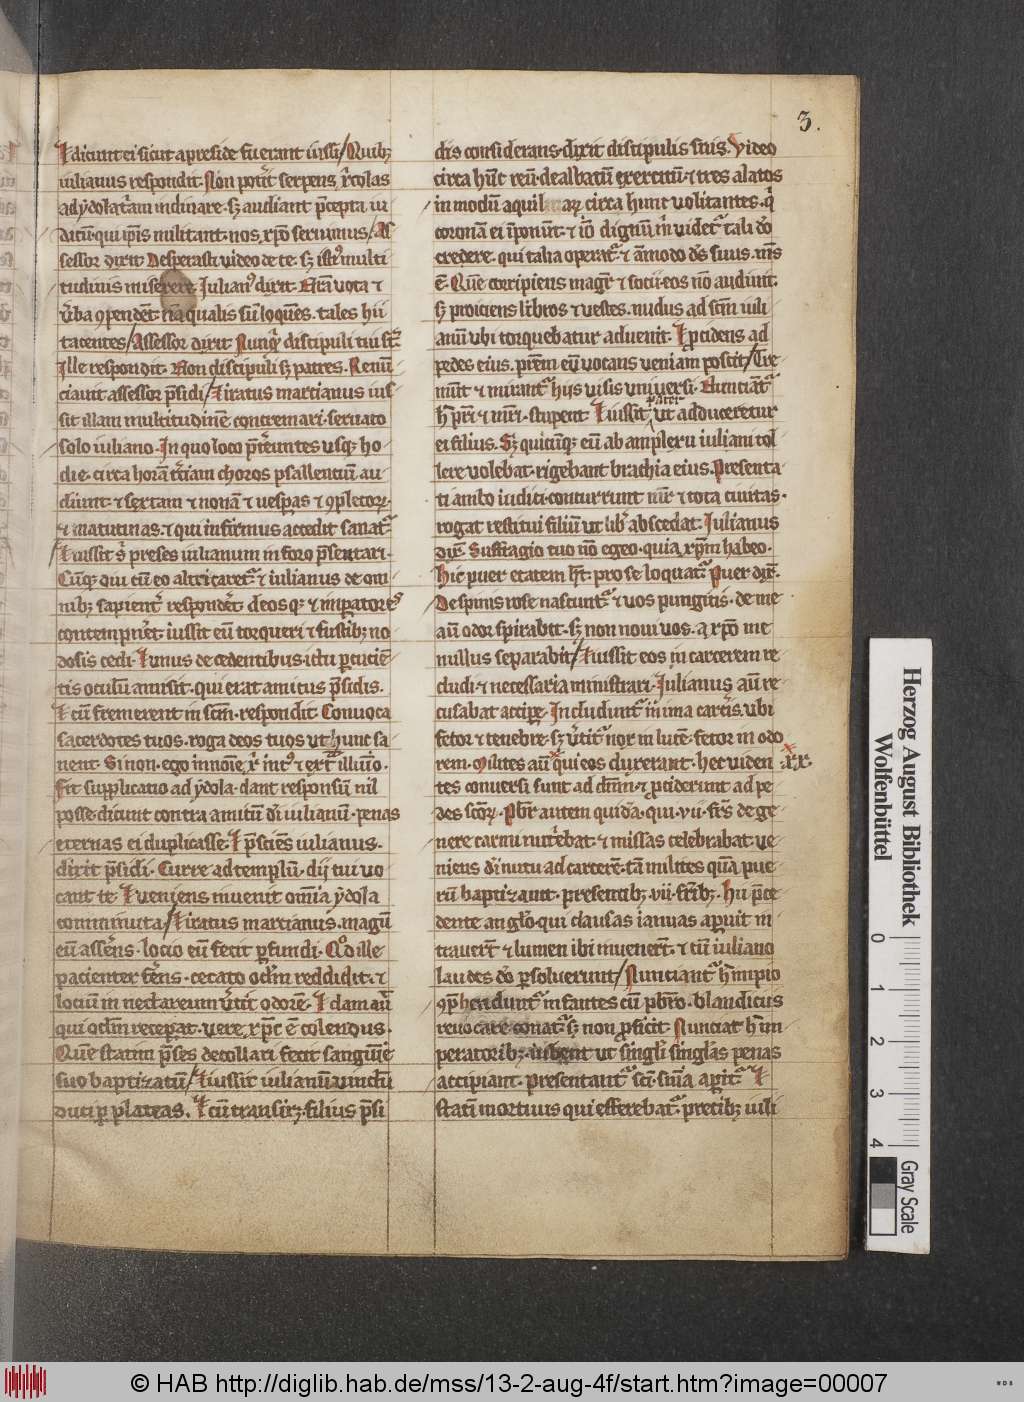 3.
⁊ dicunt ei sicut a preside fuerant iussi / Quibꝫ
iulianus respondit. Non potest serpens xp̄icolas
ad ydolatriam inclinare. sꝫ audiant p̄cepta iu
dicum. qui ip̄is militant. nos xp̄o seruimus / As
sessor dixit Desperasti video de te. sꝫ isti multi
tudinis miserere Iulianꝰ dixit. Etiam vota ⁊
v̄ba
tacentes / Assessor dixit Nunquid discipuli tui st̄
Ille respondit. Non discipuli sꝫ patres. Renun
ciauit assessor p̄sidi / Iratus martianus ius
sit illam multitudinē concremari. seruato
solo iuliano. In quo loco p̄tereuntes vsqꝫ ho
die. circa horā terciam choros psallenciū au
diunt. ⁊ sextam ⁊ nonā ⁊ uespas ⁊ ꝯpletorꝝ.
⁊ matutinas. ⁊ qui infirmus accedit sanatᷣ
⁊ iussit preses iulianum in foro p̄sentari.
Cūqꝫ qui cū eo altricaretᷣ ⁊ iulianus de om
nibꝫ sapient̄ respondet. deos qꝫ ⁊ imp̄atores
contempneret. iussit eū torqueri ⁊ fustibꝫ no
dosis cedi. ⁊ vnus de cedentibus. ictu percucien
tis oculū amisit. qui erat amicus p̄sidis.
⁊ cū fremerent in scm̄. respondit Conuoca
sacerdotes tuos. roga deos tuos ut hunc sa
nent. Si non. ego in noīe xp̄i intꝰ ⁊ ext̄ illuīo.
Fit supplicatio ad ydola. dant responsū nil
posse. dicunt contra amicū dī iulianū. penas
eternas ei duplicasse. ⁊ p̄sciēs iulianus.
dixit p̄sidi. Curre ad templū. dii tui vo
cant te. ⁊ veniens inuenit omīa ydola
comminuta / ⁊ iratus martianus. magū
eū asserēs. locio eū fecit perfundi. Qd̄ ille
pacienter ferēs. cecato oclm̄ reddidit. ⁊
lociū in nectareum v̄tit odorē. ⁊ clamauit
qui oclm̄ recepat. vere xp̄c ē colendus.
Quē statim p̄ses decollari fecit sanguine
suo baptizatū / ⁊ iussit iulianū vinctū
duci per plateas. ⁊ cū transirꝫ. filius p̄si
dis considerans. dixit discipulis suis. Video
circa hūc reū. dealbatū exercitū. ⁊ tres alatos
in modū aquilarꝝ circa hunc volitantes. q̄
coronam ei inponūt. ⁊ iō dignū m̄ videtᷣ tali dō
credere. qui talia operatᷣ ⁊ āmodo dꝰs suus. m̄s
ē. Quē corripiens magr̄ ⁊ socii. eos nō audiuit.
sꝫ proiciens libros ⁊ vestes. nudus ad scm̄ iuli
anū vbi torquebatur aduenit. ⁊ p̄cidens ad
pedes eius. prem̄ eū vocans veniam poscit / Tre
mūt ⁊ mirantᷣ hiis visis vniuersi. Nunciatᷣ
h̄ patri ⁊ mr̄i. stupent ⁊ iussit patri vt adduceretur
ei filius. Sꝫ quicūqꝫ eū ab amplexu iuliani tol
lere volebat. rigebant brachia eius. Presenta
ti ambo iudici. concurrunt mr̄ ⁊ tota ciuitas.
rogat restitui filiū ut libꝰ abscedat. Iulianus
dix̄. Suffragio tuo nō egeo. quia xp̄m habeo.
Hic puer etatem ht̄. pro se loquatᷣ Puer dix̄.
De spinis rose nascuntᷣ ⁊ vos pungitis. de me
aū odor spirabit. sꝫ non noui vos. a xp̄o me
nullus separabit / ⁊ iussit eos in carcerem re
cludi ⁊ necessaria ministrari. Iulianus aū re
cusabat accipe. Includuntᷣ in ima carceris. vbi
fetor ⁊ tenebre. sꝫ v̄titᷣ nox in lucē. fetor in odo
rem. Milites aū qui eos duxerant. hec viden xx.
tes conuersi sunt ad dn̄m. ⁊ prociderunt ad pe
des scōrꝝ. Pbr̄ autem quidā. qui. vii. frēs de ge
nere carini nutriebat. ⁊ missas celebrabat ve
niens dī nutu ad carcerē. tā milites quā pue
rū baptizauit. presentibꝫ. vii. fribꝫ. Hii p̄ce
dente anglo. qui clausas ianuas aperuit in
trauert̄ ⁊ lumen ibi inuenert̄. ⁊ cū iuliano
laudes dō persoluerunt / Nunciantᷣ h̄ impio
ꝯp̄henduntᷣ infantes cū pbr̄o. blandiciis
reuocare conatᷣ sꝫ non proficit. Nunciat h̄ im
peratoribꝫ. iubent ut singl̄i singl̄as penas
accipiant. presentantᷣ sc̄i. sīma aperitᷣ ⁊
statī mortuus qui efferebatᷣ. precibꝫ iuli
Herzog August Bibliothek
Wolfenbüttel
0 1 2 3 4
Gray Scale
© HAB http://diglib.hab.de/mss/13-2-aug-4f/start.htm?image=00007
WDB